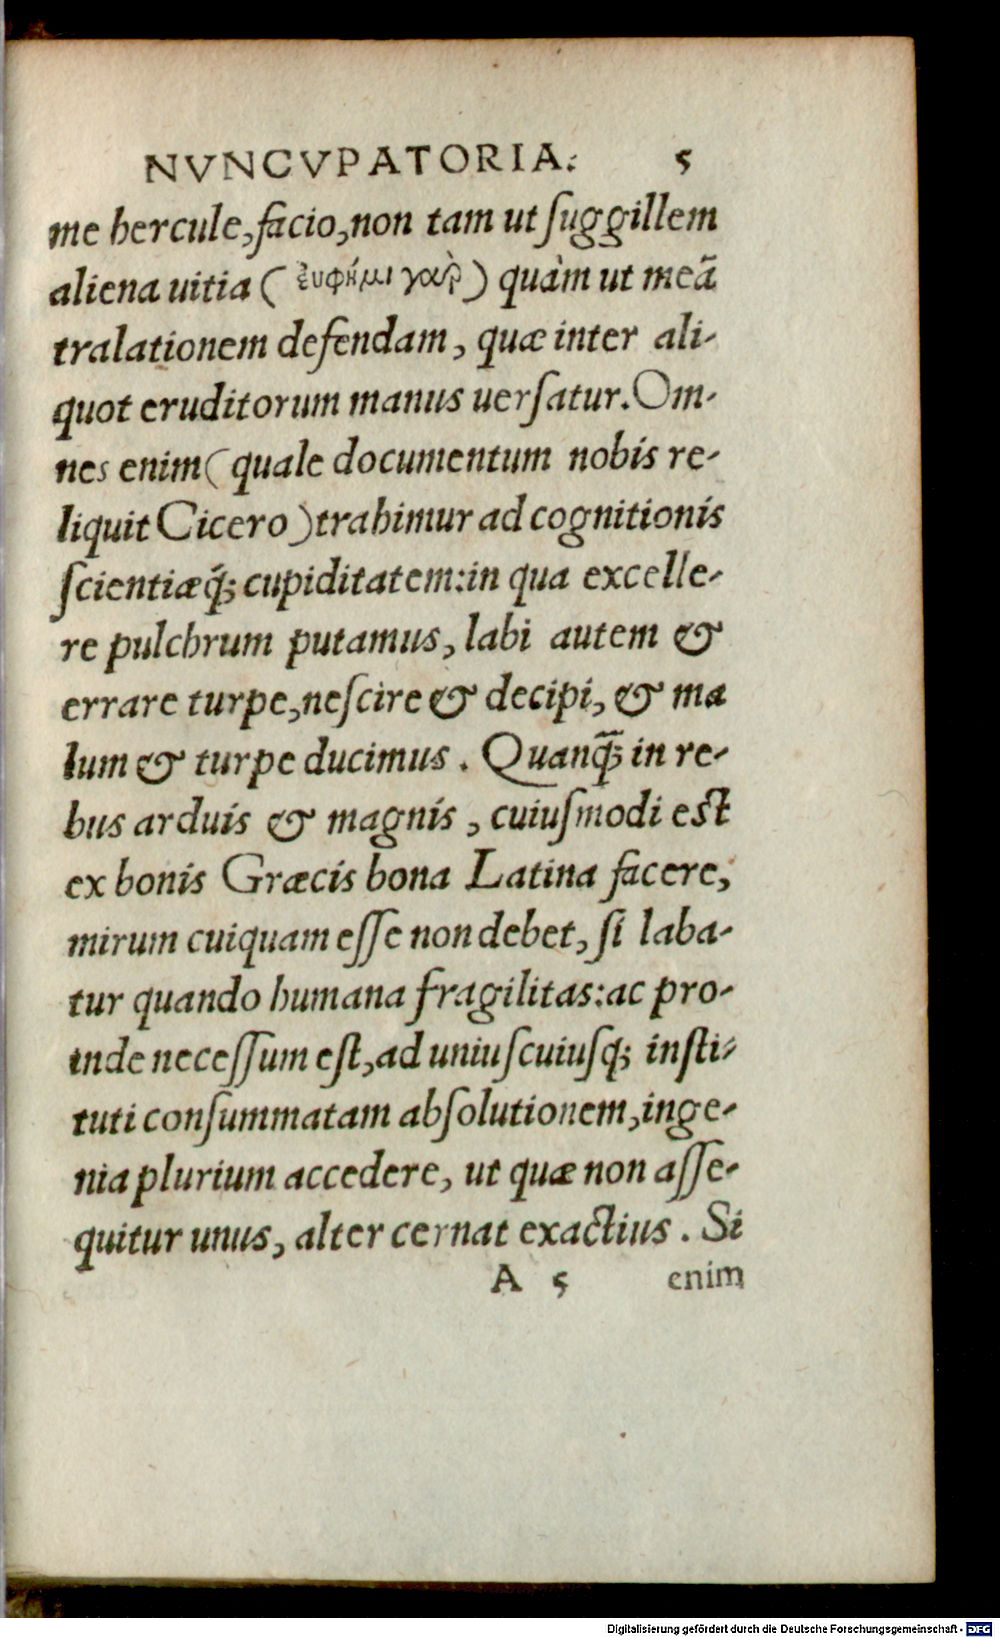 NVNCVPATORIA. 5
me hercule, facio, non tam ut ſuggillem
aliena uitia ( ξυφήμι γαρ̀ ) quàm ut meã
tralationem defendam, quæ inter ali-
quot eruditorum manus uerſatur. Om-
nes enim (quale documentum nobis re-
liquit Cicero) trahimur ad cognitionis
ſcientiæq́; cupiditatem: in qua excelle-
re pulchrum putamus, labi autem &
errare turpe, neſcire & decipi, & ma
lum & turpe ducimus. Quanq̃; in re-
bus arduis & magnis, cuiuſmodi eſt
ex bonis Græcis bona Latina facere,
mirum cuiquam eſſe non debet, ſi laba-
tur quando humana fragilitas: ac pro-
inde neceſſum eſt, ad uniuſcuiuſq; inſti-
tuti conſummatam abſolutionem, inge-
nia plurium accedere, ut quæ non aſſe-
quitur unus, alter cernat exactius. Si
A 5 enim
Digitalisierung gefördert durch die Deutsche Forschungsgemeinschaft - DFG